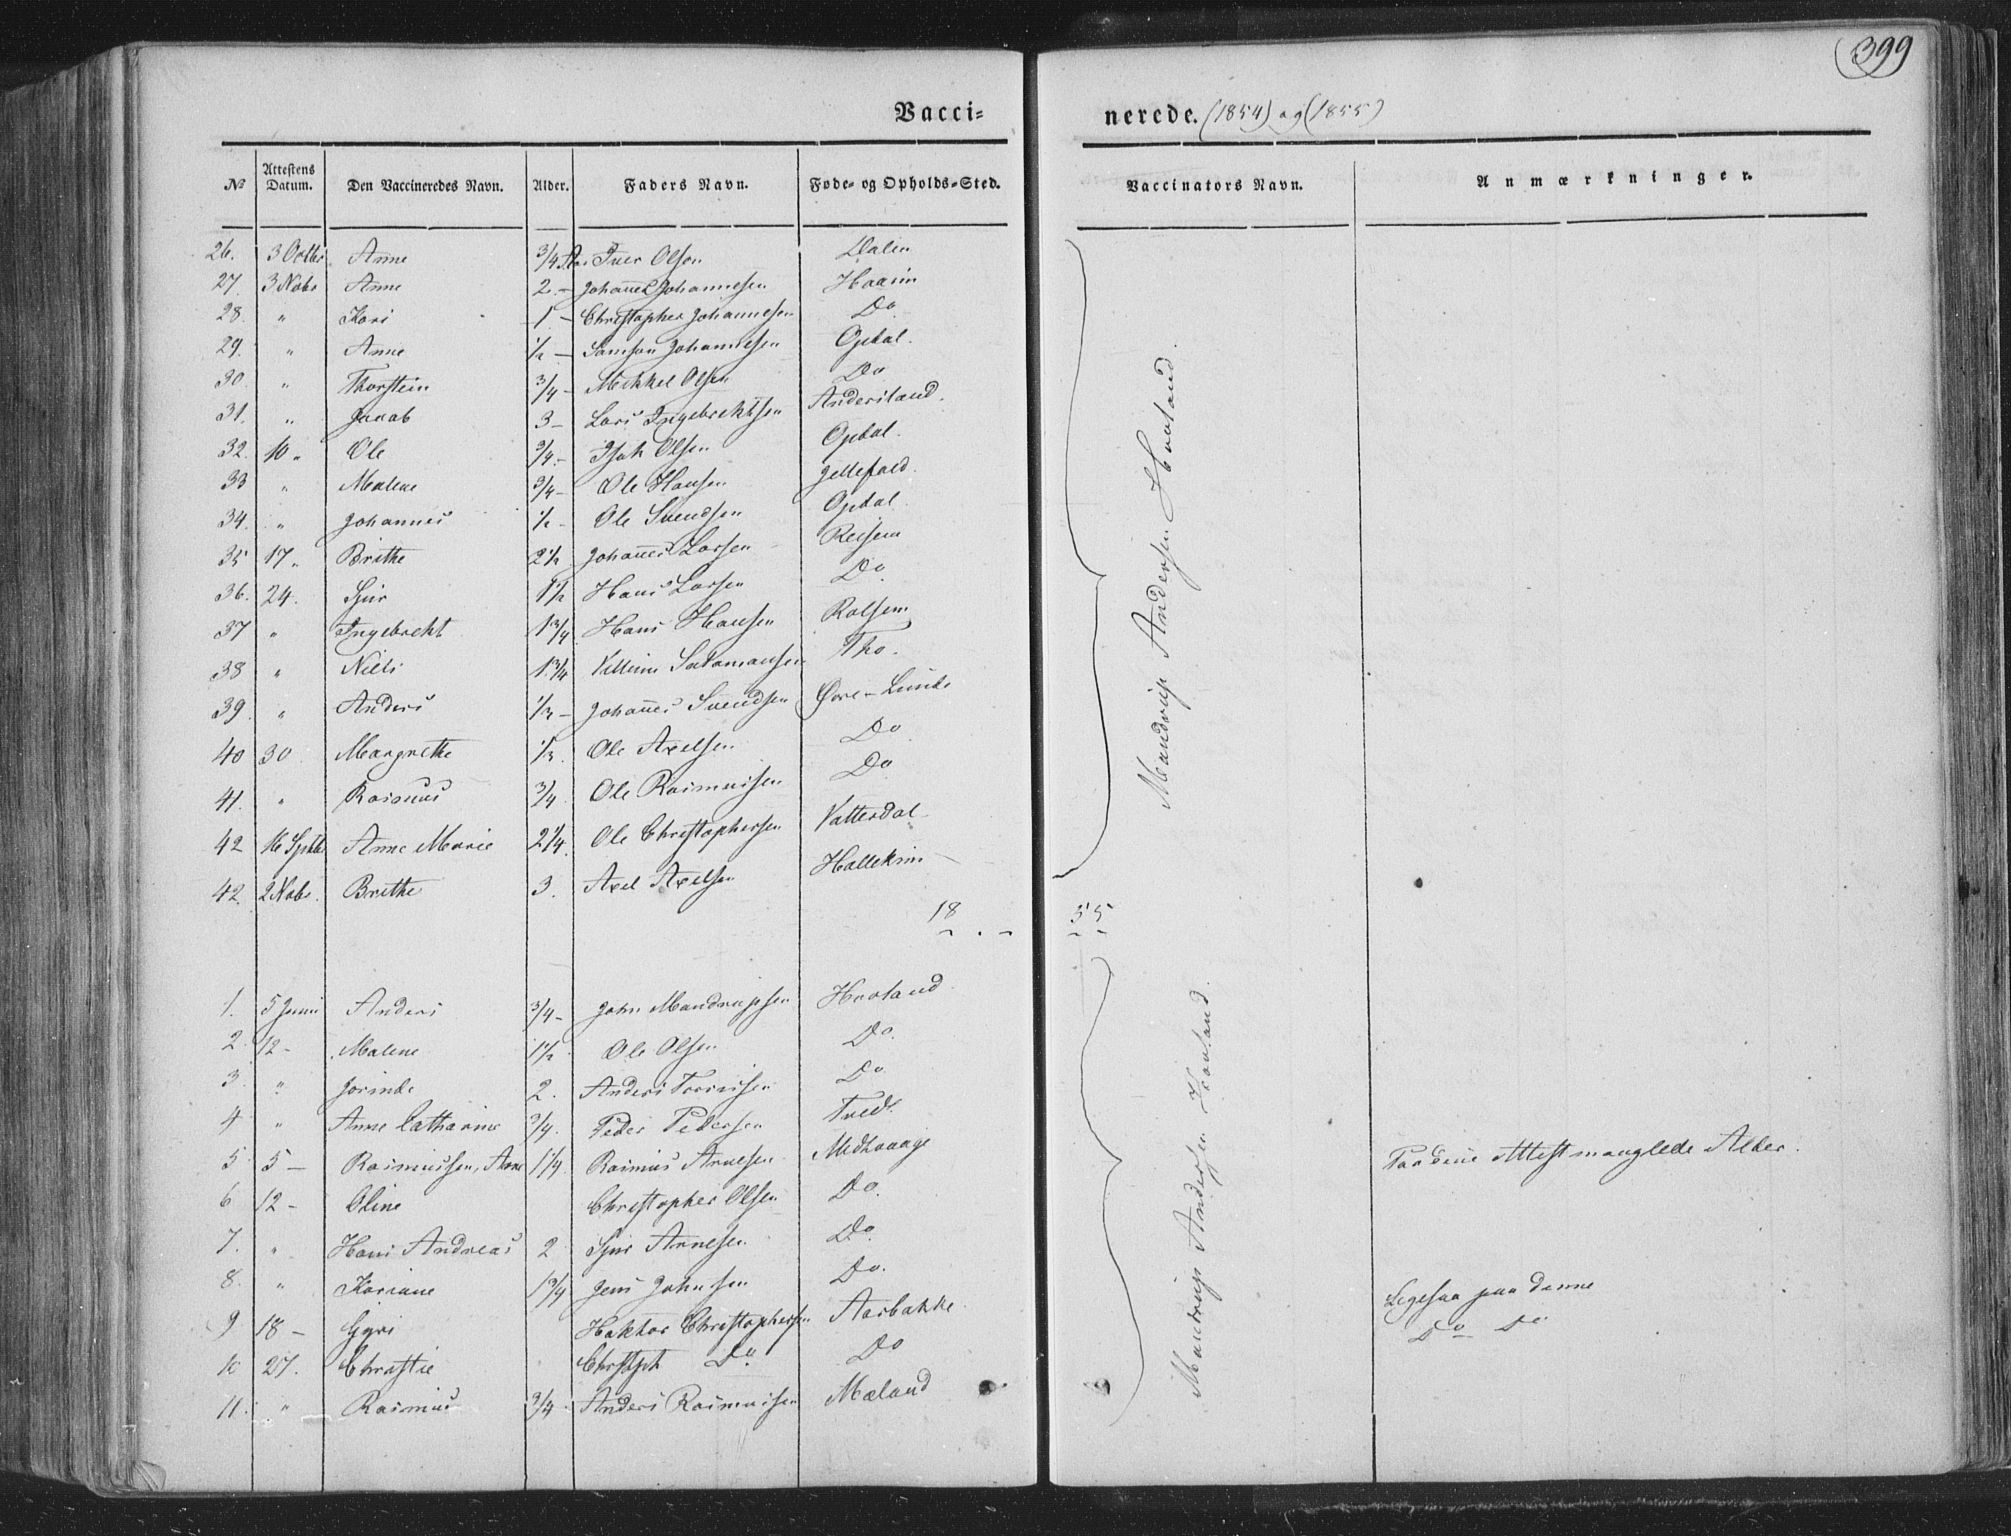 399
Vacci- nerede. (1854) og (1855)
No Attestens Datum. Den Vaccineredes Navn. Alder. Faders Navn. Føde- og Opholds-Sted. Vaccinators Navn. Anmærkninger.
26. 3 Octbr Anne 3/4 Aar Iver Olsen Dalen
27. 3 Nobr Anne 2 - Johannes Johannesen Haaeim
28. " Kari 1 - Christopher Johannesen Do
29. " Anne 1/2 - Samson Johannesen Opdal.
30. " Thorstein 3/4 - Mikkel Olsen Do
31. " Jacob 3 - Lars Ingebrektsen Andersland.
32. 10 " Ole 3/4 - Isak Olsen Opdal.
33 " Malene 3/4 - Ole Hansen
34. " Johannes 1/2 - Ole Svendsen Opdal
35 17 " Brithe 2 1/2 Johannes Larsen Reisem
36. 24. Sjur 1 1/2 Hans Larsen Do
37 " Ingebrekt 1 3/4 Hans Hansen Rolsem
38 " Niels 1 3/4 Salamonsen Tho.
39. " Anders 1/3 - Johannes Svendsen Øvre-Lunde
40 30 Margrethe 1/3. Ole Axelsen Do
41. " Rasmus 3/4 Ole Rasmussen Do
42 16 Sptbr Anne Marie 2 1/4 Ole Christophersen Vatterdal
42. 2 Nobr. Brithe 3. Axel Axelsen
Mandrup Andersen Hovland.
18 55
1. 5 Juni Anders 3/4 - John Mandrupsen Hovland
2. 12 - Malene 1 1/2 Ole Olsen Do.
3. " Jorinde 2. Anders Do
4 " Anne Catharine 3/4. Peder Pedersen
5 5 - Rasmussen, Arne 1 1/4. Rasmus Arnesen Medhaauge Paa denne Attest manglede Alder.
6 12 - Oline Christopher Olsen Do.
7. " Hans Andreas 2 Sjur Arnesen Do.
8. " Kariane 1 3/4 Jens Johnsen Do.
9 18 - Gyri Haktor Christophersen Aarbakke Ligesaa paa denne
10 27. Christie Christoph Do Do Do Do
11. " Rasmus 3/4 - Anders Rasmussen Mæland
Mandrup Andersen Hovland.